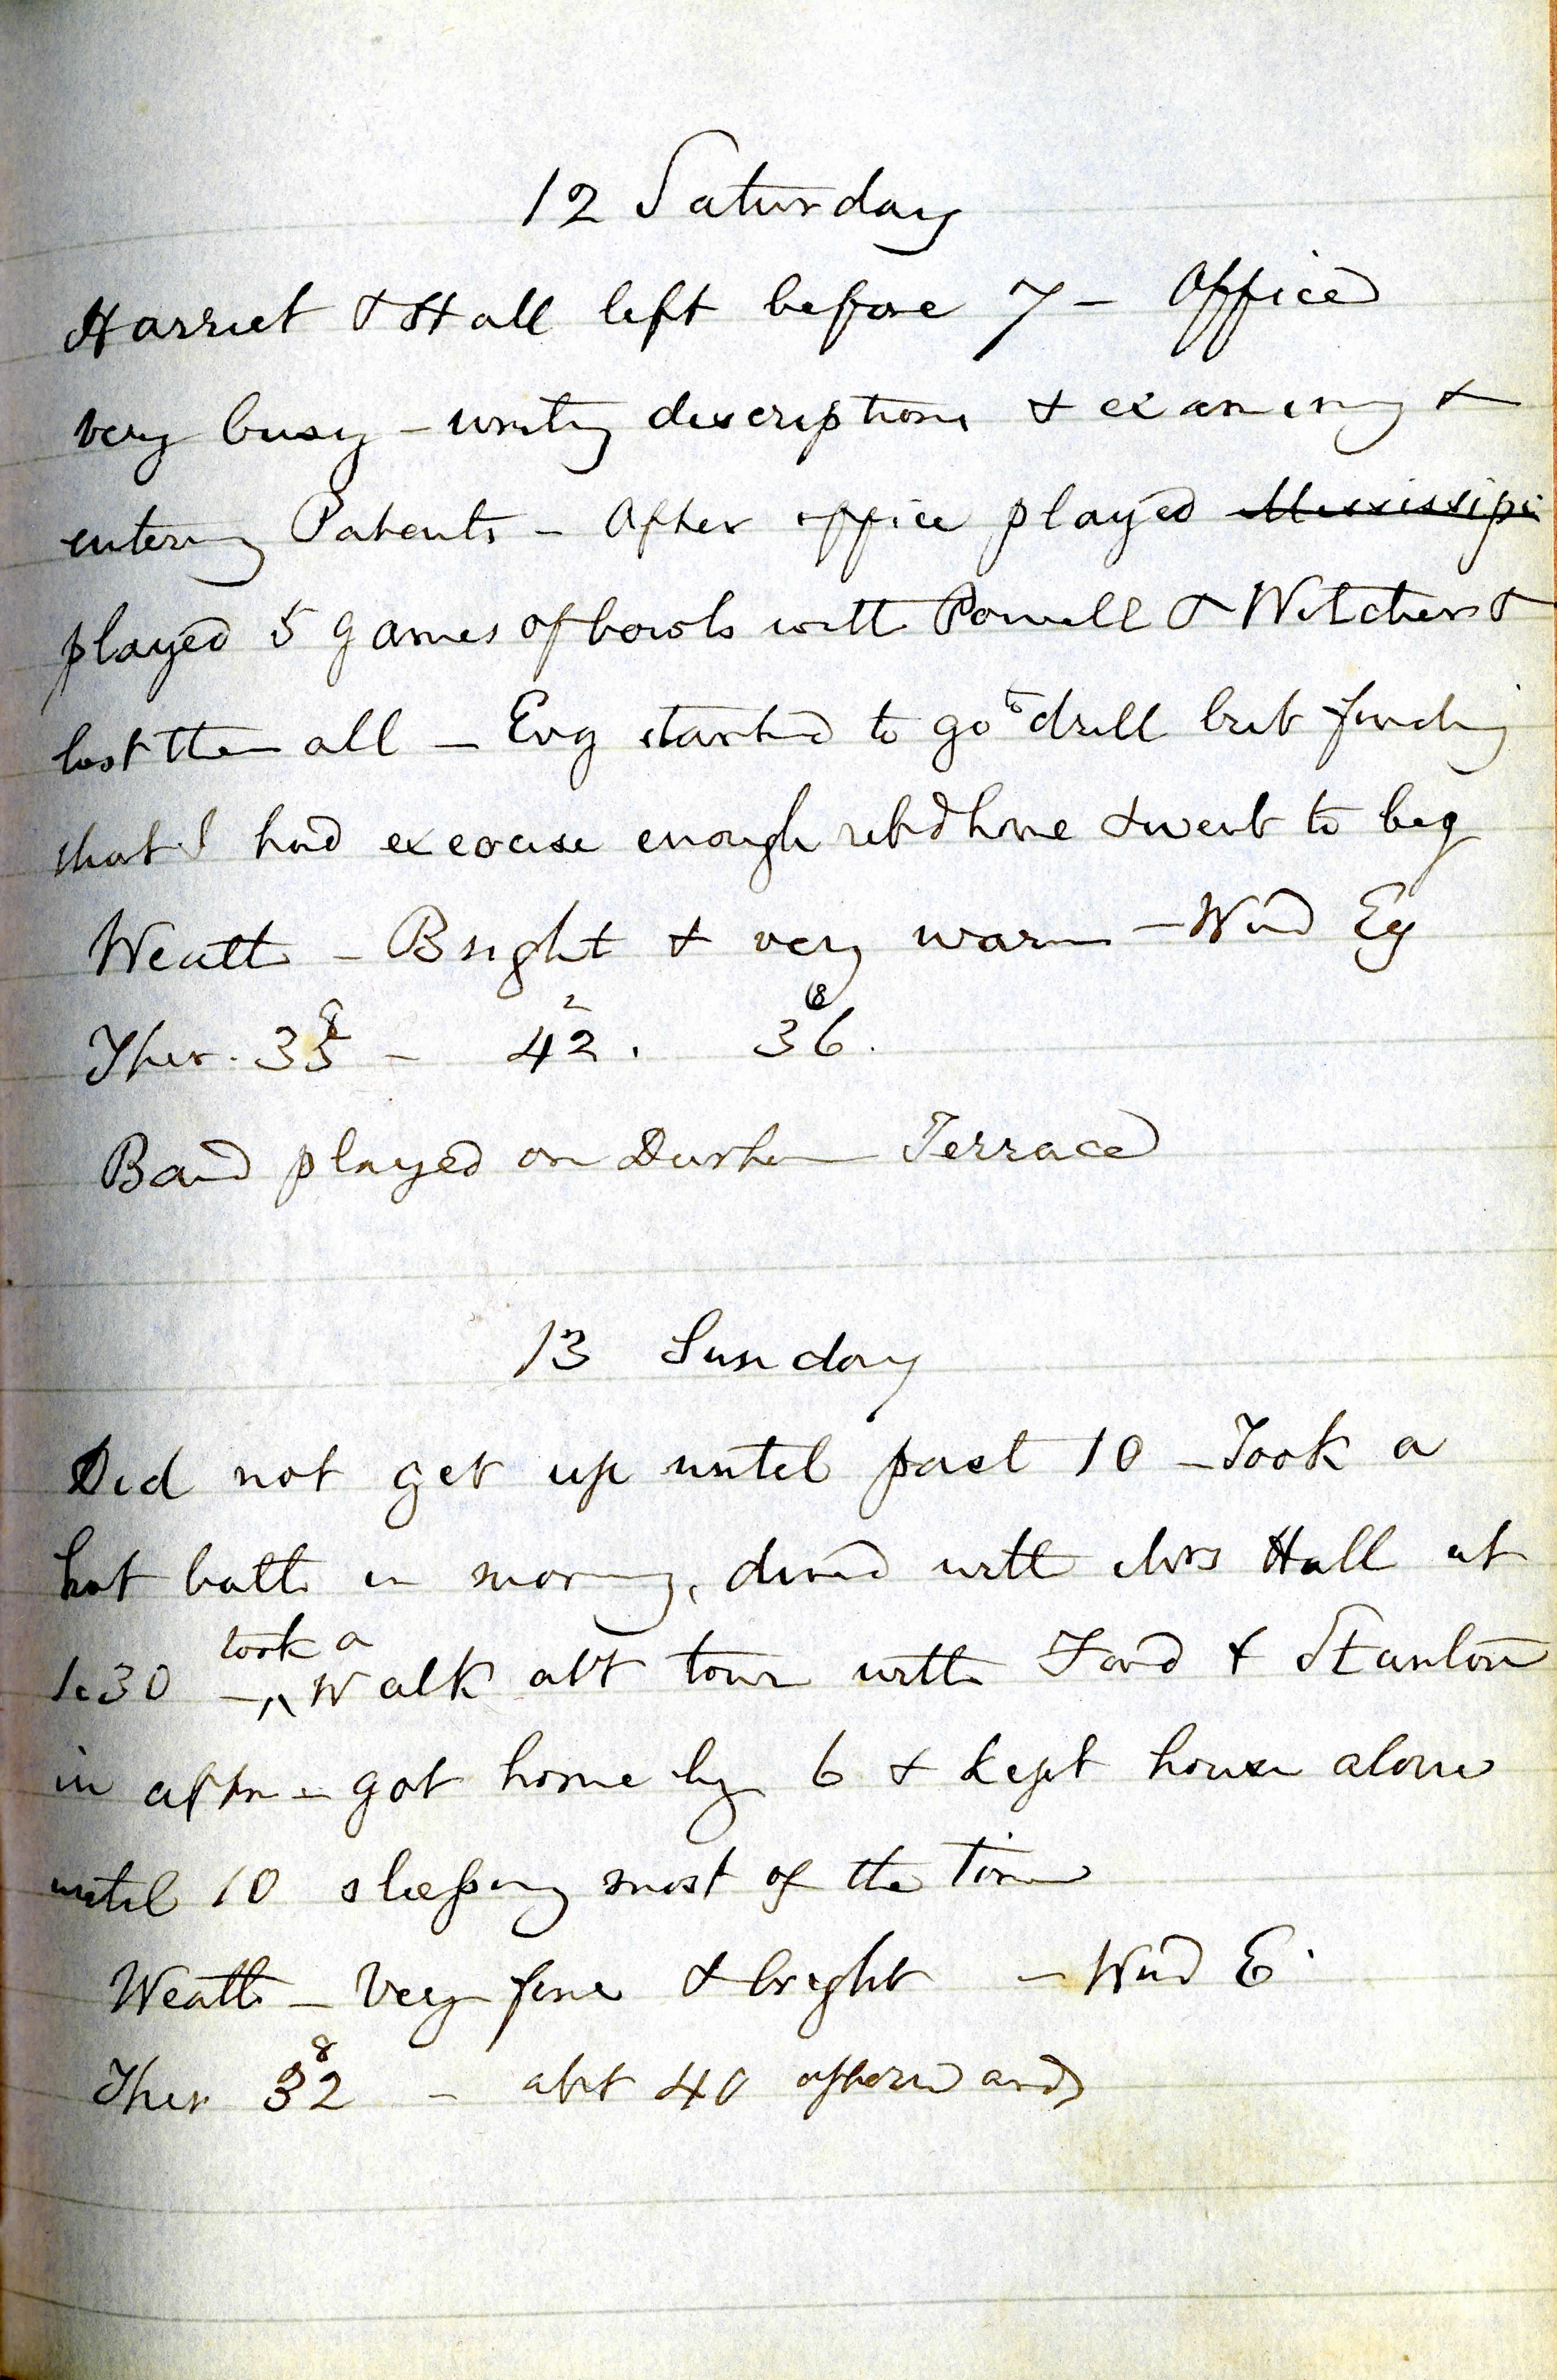 12 Saturday
Harriet & Hall left before 7 - Office
very busy - writing descriptions & examining &
entering Patents - After office played Mississipi
played 5 games of bowls with Powell & Witcher &
lost them all - Evg started to go to drill but finding
that I had exercise enough retd home & went to beg
Weath - Bright & very warm - Wind Ey
8 2 8
Ther. 35 - 42. 36.
Band played on Durham Terrace
13 Sunday
Did not get up until past 10 - Took a
hot bath in morning, dined with Mrs Hall at
took a
1.30 - ^ Walk abt town with Ford & Stanton
in aftn - got home by 6 & kept house alone
until 10 sleeping most of the time
Weath - Very fine & bright - Wind E.
8
Ther 32 - abt 40 afterwards